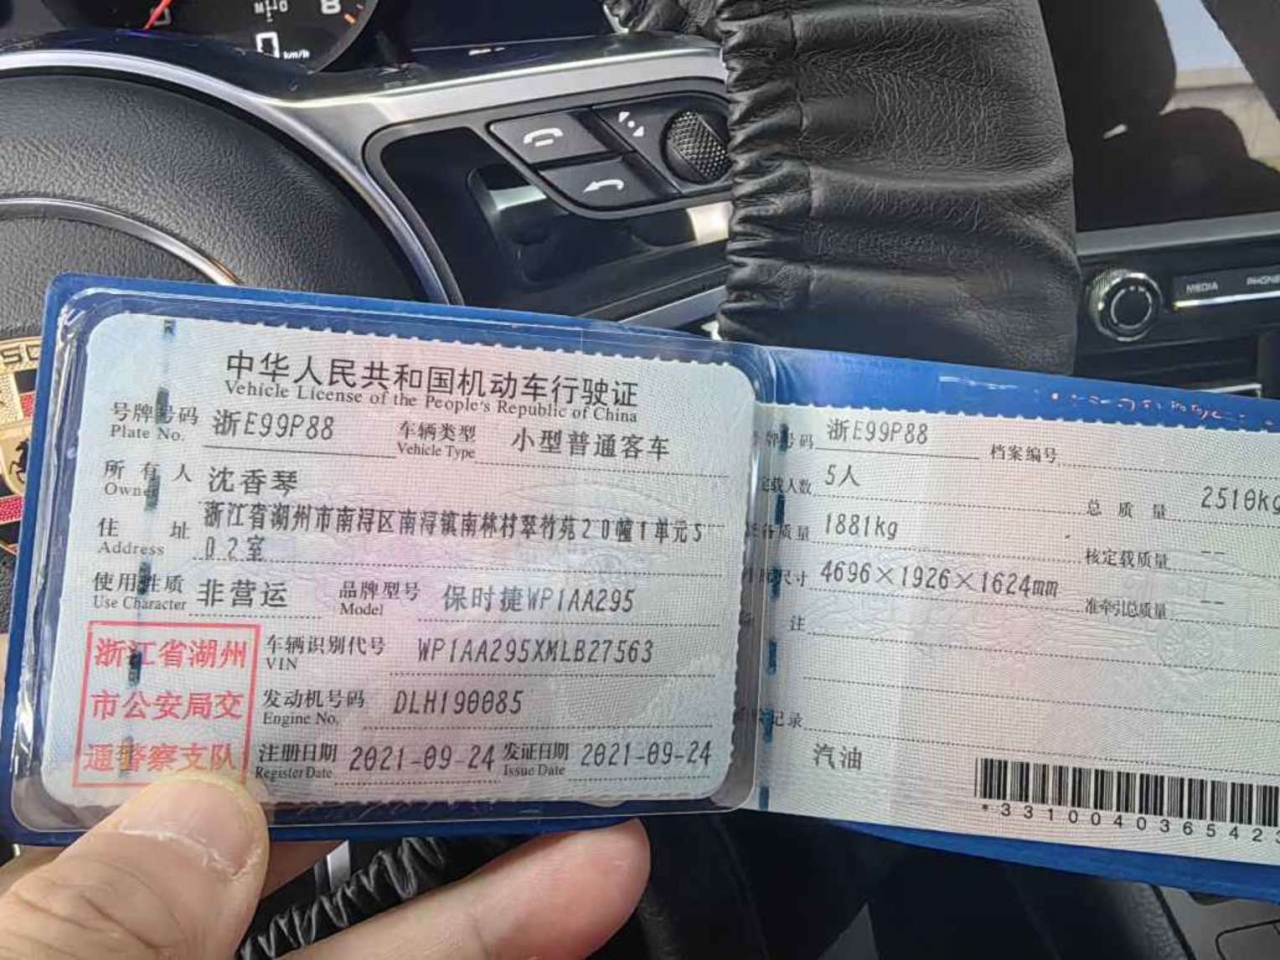 8
0 km/h
MEDIA
中华人民共和国机动车行驶证
Vehicle License of the People's Republic of China
号牌号码 浙E99P88 车辆类型 小型普通客车
Plate No. Vehicle Type
所有人 沈香琴
Owner
住址 浙江省湖州市南浔区南浔镇南林村翠竹苑20幢1单元5
Address 02室
使用性质 非营运 品牌型号 保时捷WP1AA295
Use Character Model
浙江省湖州
市公安局交
通警察支队
车辆识别代号 WP1AA295XMLB27563
VIN
发动机号码 DLH190085
Engine No.
注册日期 2021-09-24 发证日期 2021-09-24
Register Date Issue Date
号牌号码 浙E99P88 档案编号
定载人数 5人 总质量 2510kg
备质量 1881kg 核定载质量 --
尺寸 4696×1926×1624mm 准牵引总质量 --
注
记录
汽油
*331004036542